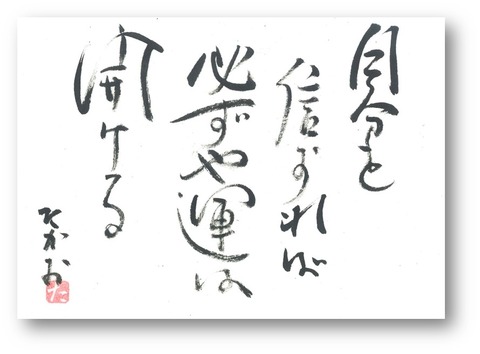 自分を
信ずれば
必ずや運は
開ける
たかお
た